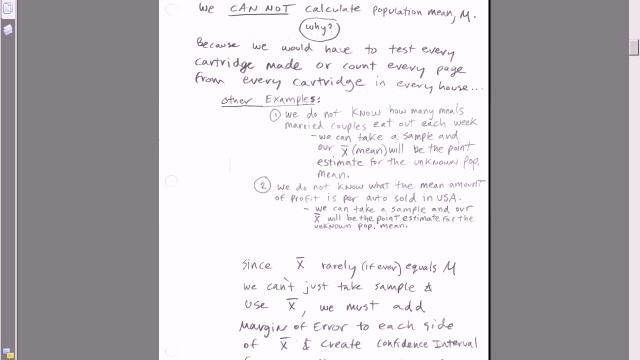 We CAN NOT calculate population mean, M.
Why?
Because we would have to test every
cartridge made or count every page
from every cartridge in every house...
other Examples:
① we do not know how many meals
married couples eat out each week
- we can take a sample and
our x̄ (mean) will be the point
estimate for the unknown pop.
mean.
② we do not know what the mean amount
of profit is per auto sold in USA.
- we can take a sample and our
x̄ will be the point estimate for the
unknown pop. mean.
Since x̄ rarely (if ever) equals M
we can't just take sample &
use x̄, we must add
Margin of Error to each side
of x̄ & create Confidence Interval